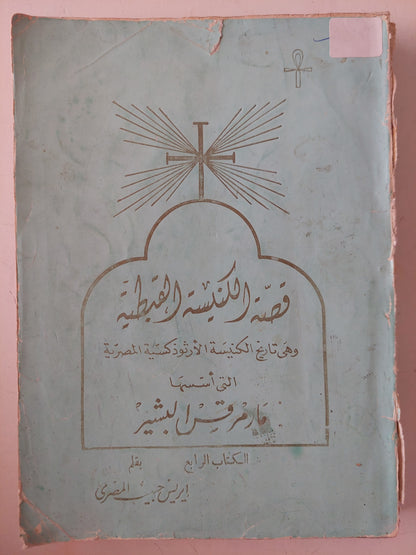 قصة الكنيسة القبطية
وهى تاريخ الكنيسة الأرثوذكسية المصرية
التى أسسها
مار مرقس البشير
الكتاب الرابع
بقلم
ايريس حبيب المصرى